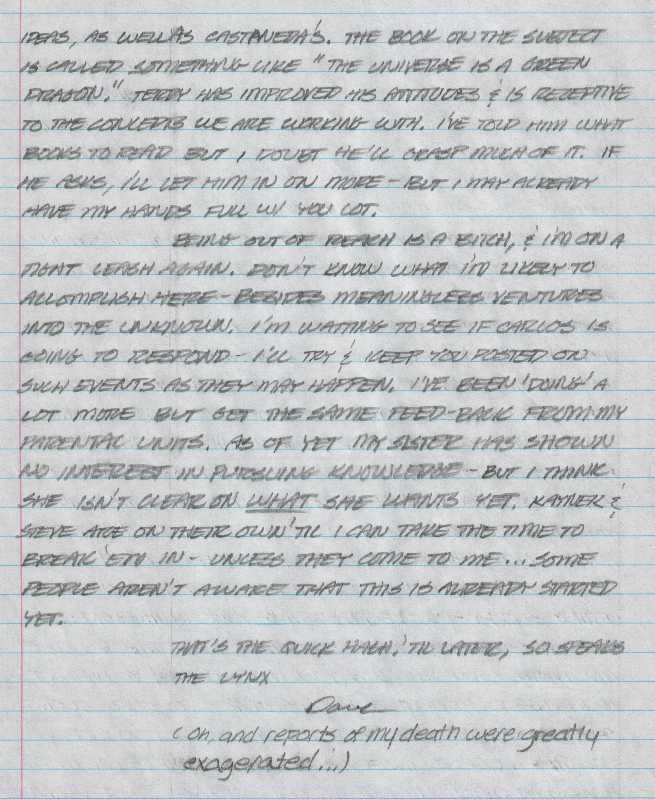 IDEAS, AS WELL AS CASTANEDA'S. THE BOOK ON THE SUBJECT
IS CALLED SOMETHING LIKE "THE UNIVERSE IS A GREEN
DRAGON." TERRY HAS IMPROVED HIS ATTITUDES & IS RECEPTIVE
TO THE CONCEPTS WE ARE WORKING WITH. I'VE TOLD HIM WHAT
BOOKS TO READ BUT I DOUBT HE'LL GRASP MUCH OF IT. IF
HE ASKS, I'LL LET HIM IN ON MORE - BUT I MAY ALREADY
HAVE MY HANDS FULL W/ YOU LOT.
BEING OUT OF REACH IS A BITCH, & I'M ON A
TIGHT LEASH AGAIN. DON'T KNOW WHAT I'M LIKELY TO
ACCOMPLISH HERE - BESIDES MEANINGLESS VENTURES
INTO THE UNKNOWN. I'M WAITING TO SEE IF CARLOS IS
GOING TO RESPOND - I'LL TRY & KEEP YOU POSTED ON
SUCH EVENTS AS THEY MAY HAPPEN. I'VE BEEN 'DOING' A
LOT MORE BUT GET THE SAME FEED-BACK FROM MY
PARENTAL UNITS. AS OF YET MY SISTER HAS SHOWN
NO INTEREST IN PURSUING KNOWLEDGE - BUT I THINK
SHE ISN'T CLEAR ON WHAT SHE WANTS YET. &
STEVE ARE ON THEIR OWN 'TIL I CAN TAKE THE TIME TO
BREAK 'EM IN - UNLESS THEY COME TO ME... SOME
PEOPLE AREN'T AWARE THAT THIS IS ALREADY STARTED
YET.
THAT'S THE QUICK HASH. 'TIL LATER, SO SPEAKS
THE LYNX
Dave
(Oh, and reports of my death were greatly
exagerated...)